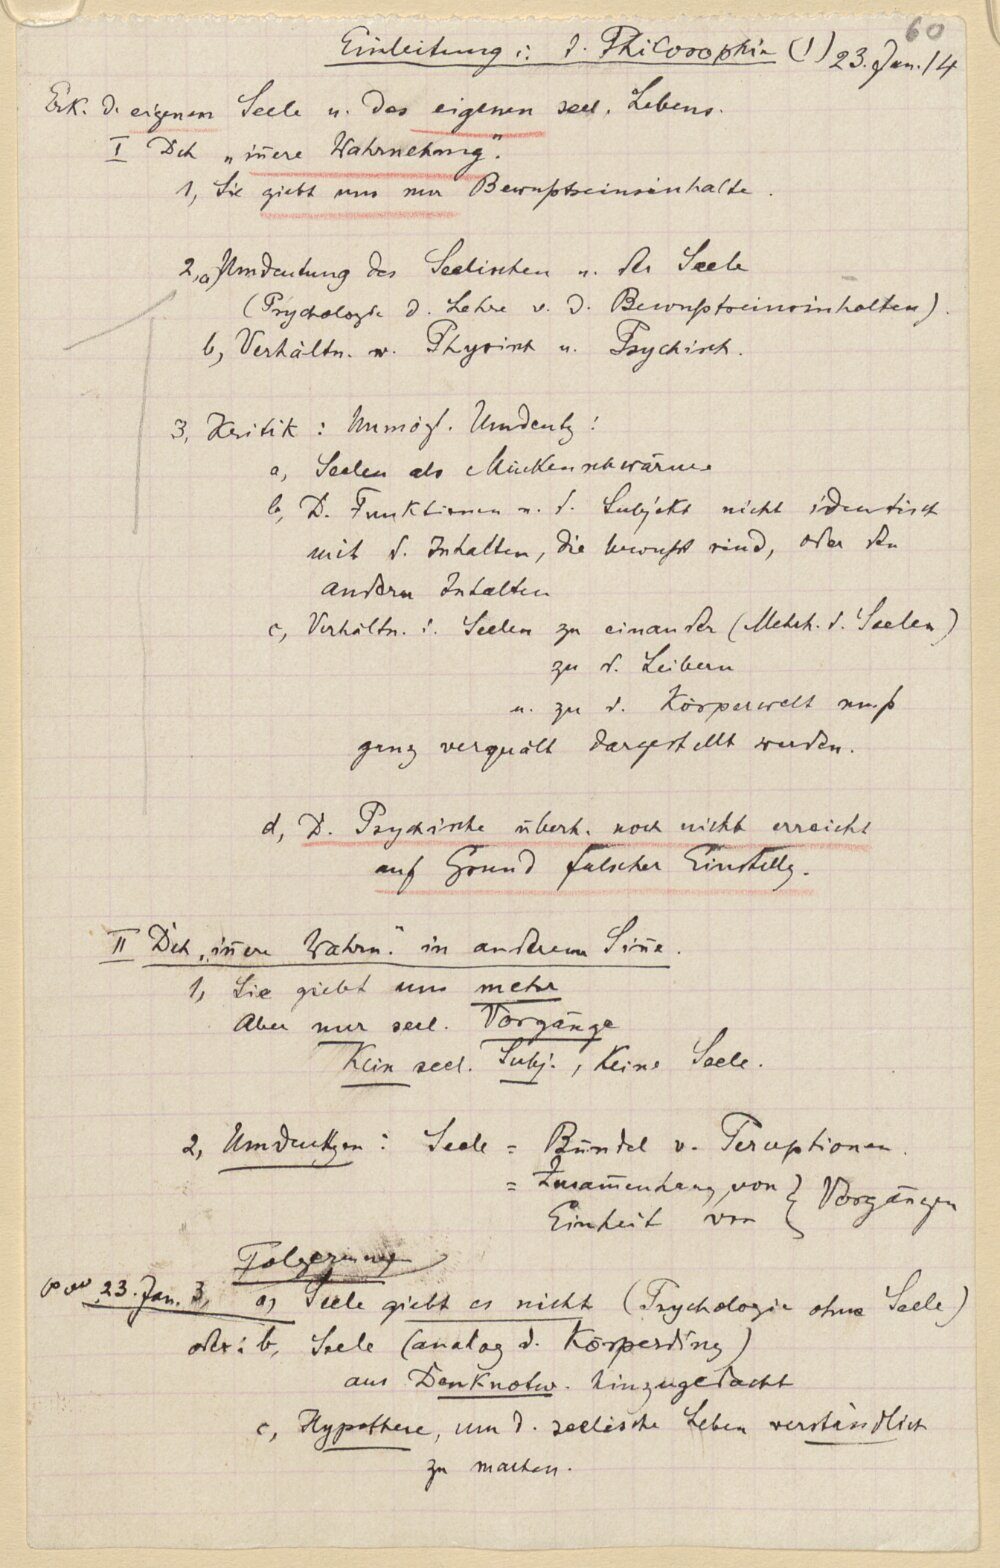 60
Einleitung i. d. Philosophie (1) 23. Jan. 14
Erk. d. eigenen Seele u. des eigenen seel. Lebens.
I Dch „iñere Wahrnehmg".
1, Sie giebt uns nur Bewußtseinsinhalte.
2, a, Umdeutung des Seelischen u. der Seele
(Psychologie d. Lehre v. d. Bewußtseinsinhalten).
b, Verhältn. v. Physisch u. Psychisch.
3, Kritik: Unmögl. Umdeutg:
a, Seelen als Mückenschwärme
b, D. Funktionen u. d. Subjekt nicht identisch
mit d. Inhalten, die bewußt sind, oder den
andern Inhalten
c, Verhältn. d. Seelen zu einander (Mehrh. d. Seelen)
zu d. Leibern
u. zu d. Körperwelt muß
ganz verquält dargestellt werden.
d, D. Psychische überh. noch nicht erreicht
auf Grund falscher Einstellg.
II Dch „iñere Wahrn." in anderem Siñe.
1, Sie giebt uns mehr
Aber nur seel. Vorgänge
Kein seel. Subj., keine Seele.
2, Umdeutgen: Seele = Bündel v. Perceptionen.
= Zusam̄enhang von } Vorgängen
Einheit von
Folgerung
23. Jan. 3, a, Seele giebt es nicht (Psychologie ohne Seele)
oder: b, Seele (analog d. Körperding)
aus Denknotw. hinzugedacht
c, Hypothese, um d. seelische Leben verständlich
zu machen.